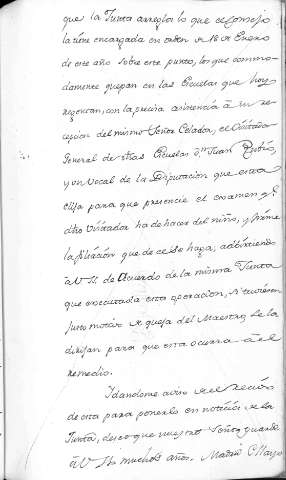 que la Junta arregle lo que el Consejo
la tiene encargada en orden de 18 de Enero
de este año sobre este punto, los que commo-
damente quepan en las Escuelas que hoy
regentan, con la precisa asistencia à su re-
cepcion del mismo Señor Celador, el Visitador
General de dhas Escuelas Dn Juan Rubio,
y un Vocal de la Diputacion que
elija para que presencie el examen qe
dho Visitador ha de hacer del niño, y firme
la filiacion que de ese se haga, advirtiendo
à V. S. de Acuerdo de la misma Junta
que executada esta operacion, si tuviesen
justo motivo de queja del Maestro, se la
dirijan para que esta ocurra à el
remedio.
Y dandome aviso de el recivo
de esta para ponerlo en noticia de la
Junta, deseo que nuestro Señor guarde
à V. S. muchos años. Madrid Mayo